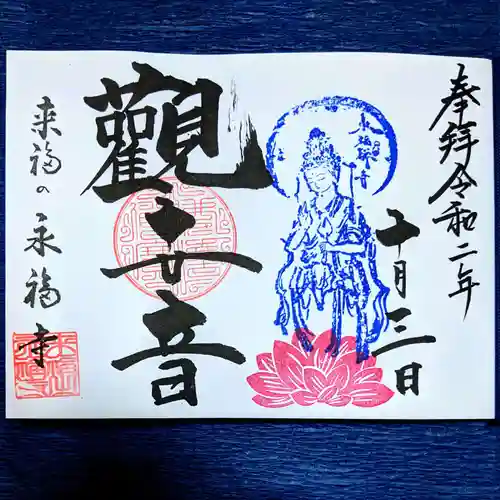 奉拝令和二年
十月三日
觀世音
来福の永福寺